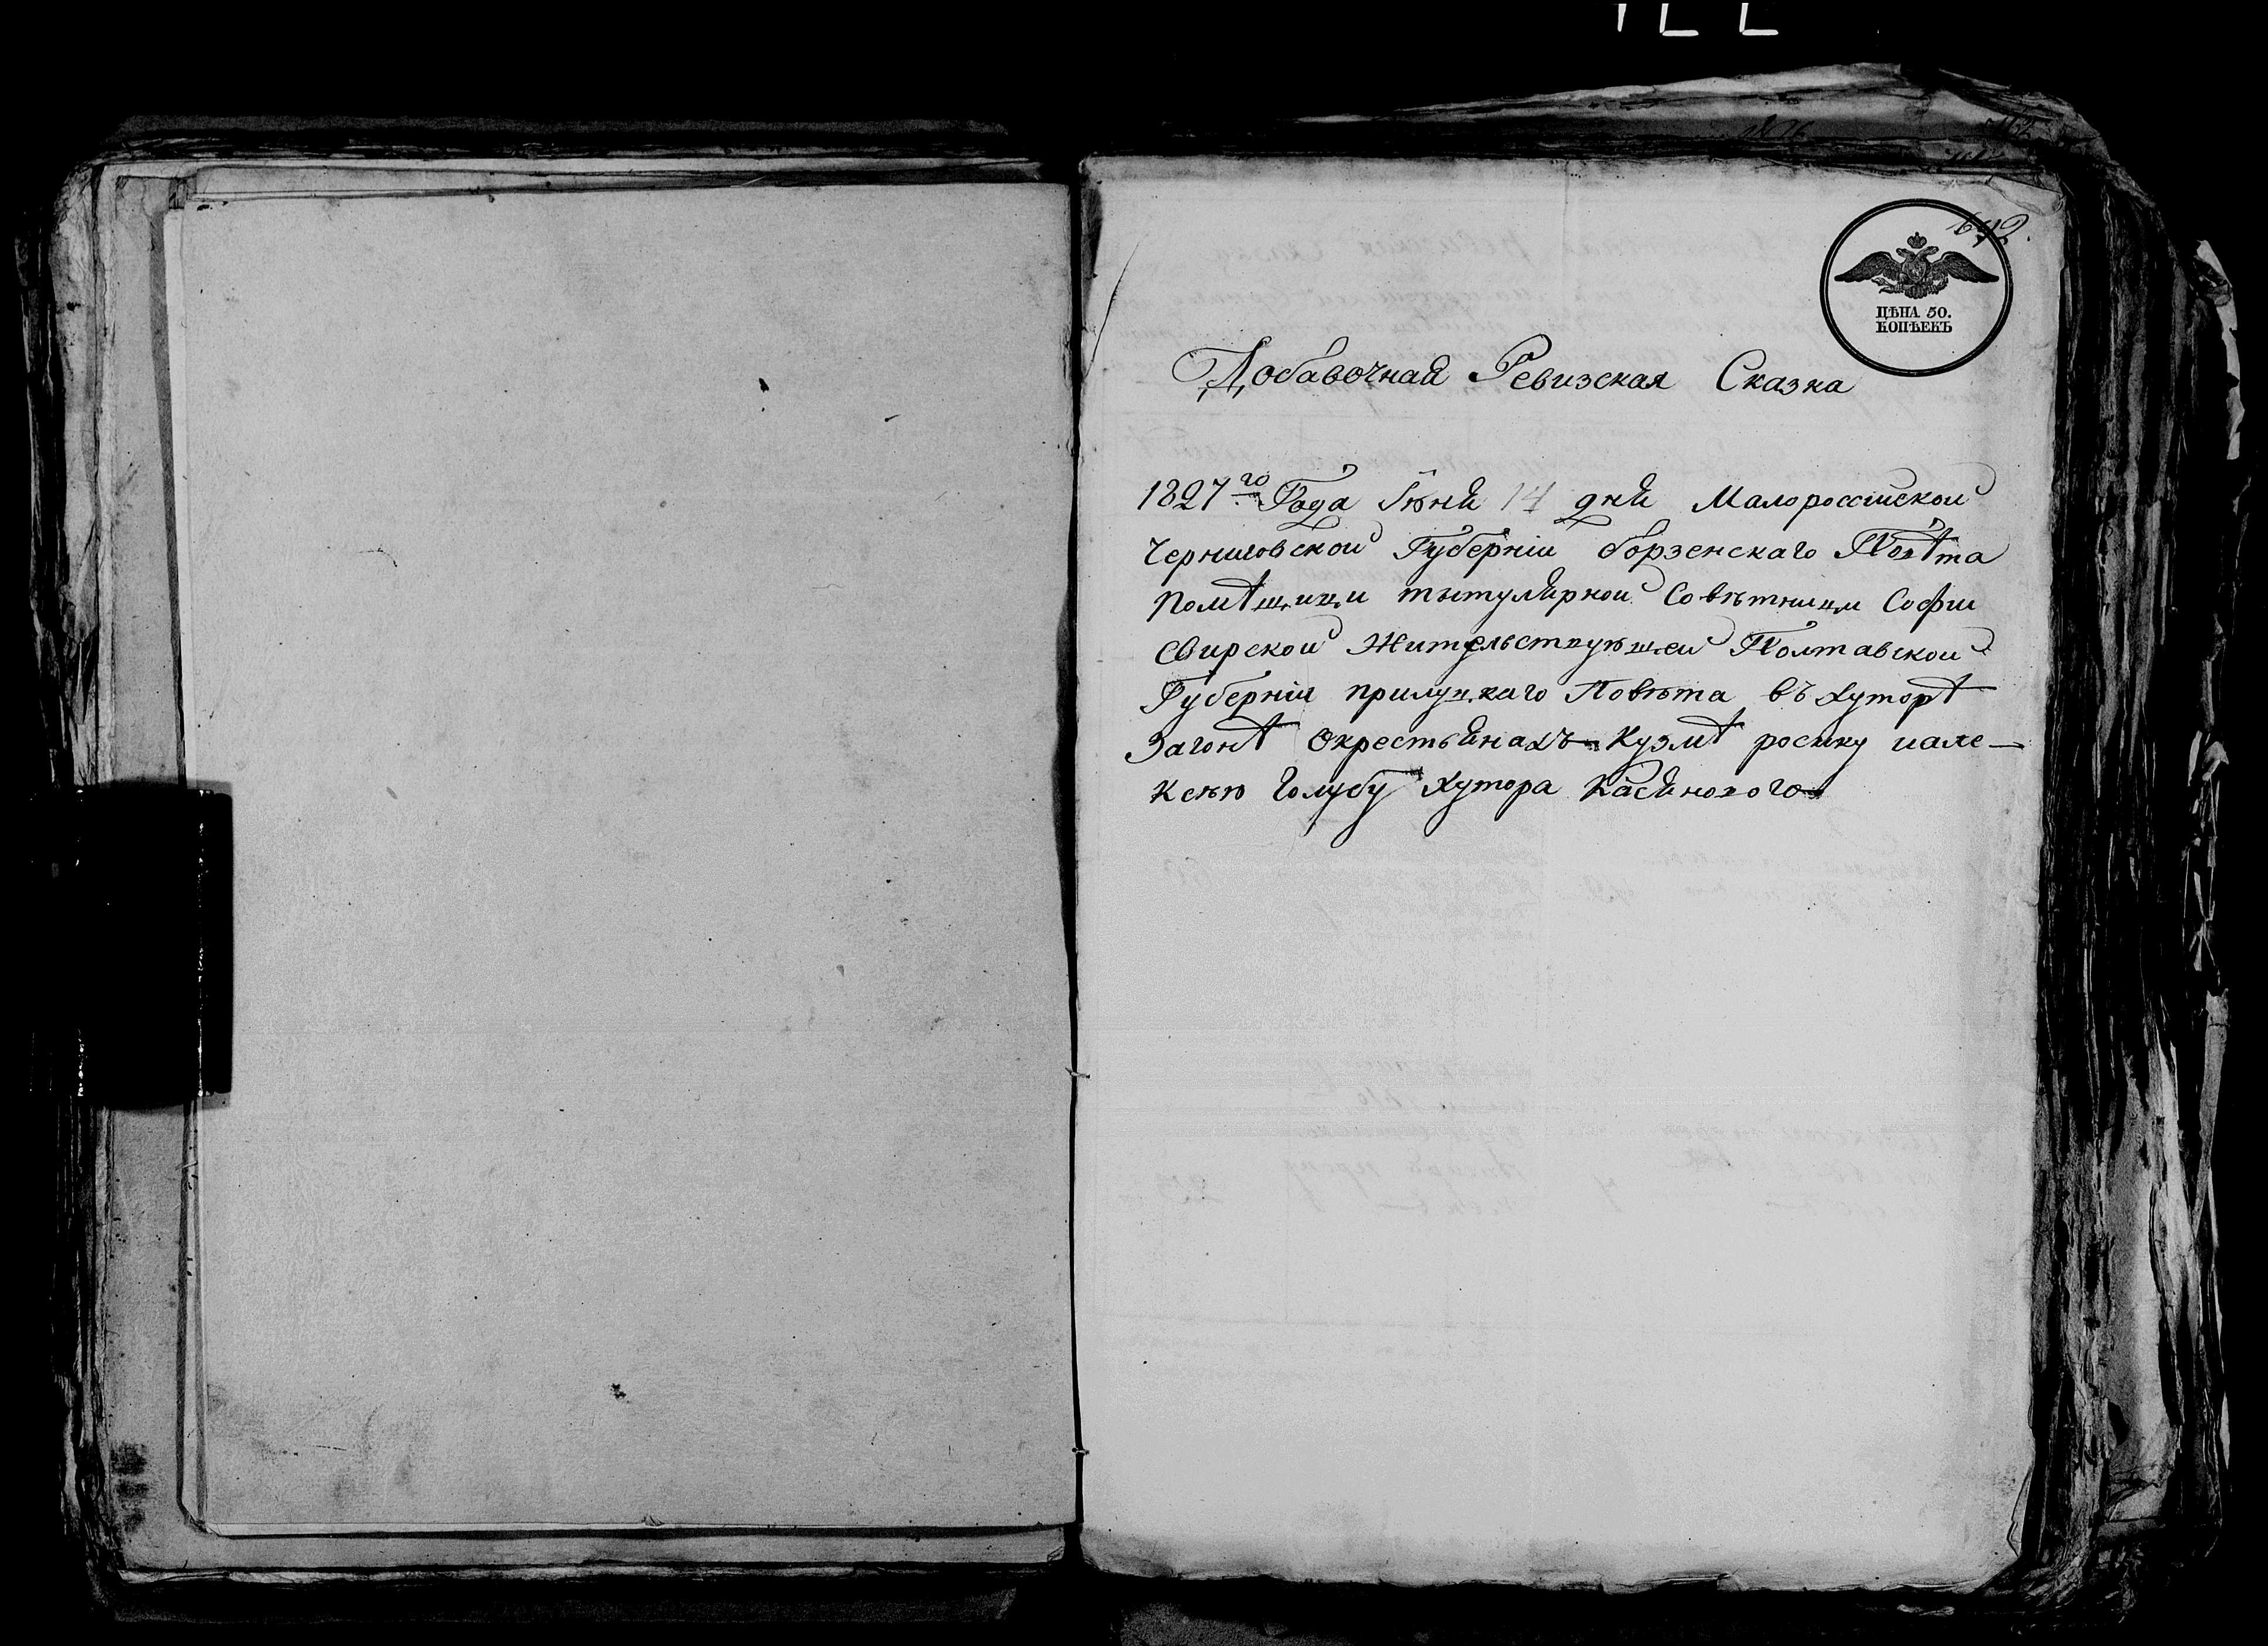 642.
ЦѢНА 50.
КОПѢЕКЪ
Добавочная Ревизская Сказка
1827го Года Іюня 14 дня Малороссіиской
Черниговской Губерніи борзенскаго Повѣта
помѣщици тытулярной Совѣтници Софіи
Свирской Жительствующей Полтавской
Губерніи прилуцкаго Повѣта въ хуторѣ
Загонѣ Окрестьянахъ Кузмѣ росику иале-
ксѣю Голубу Хутора